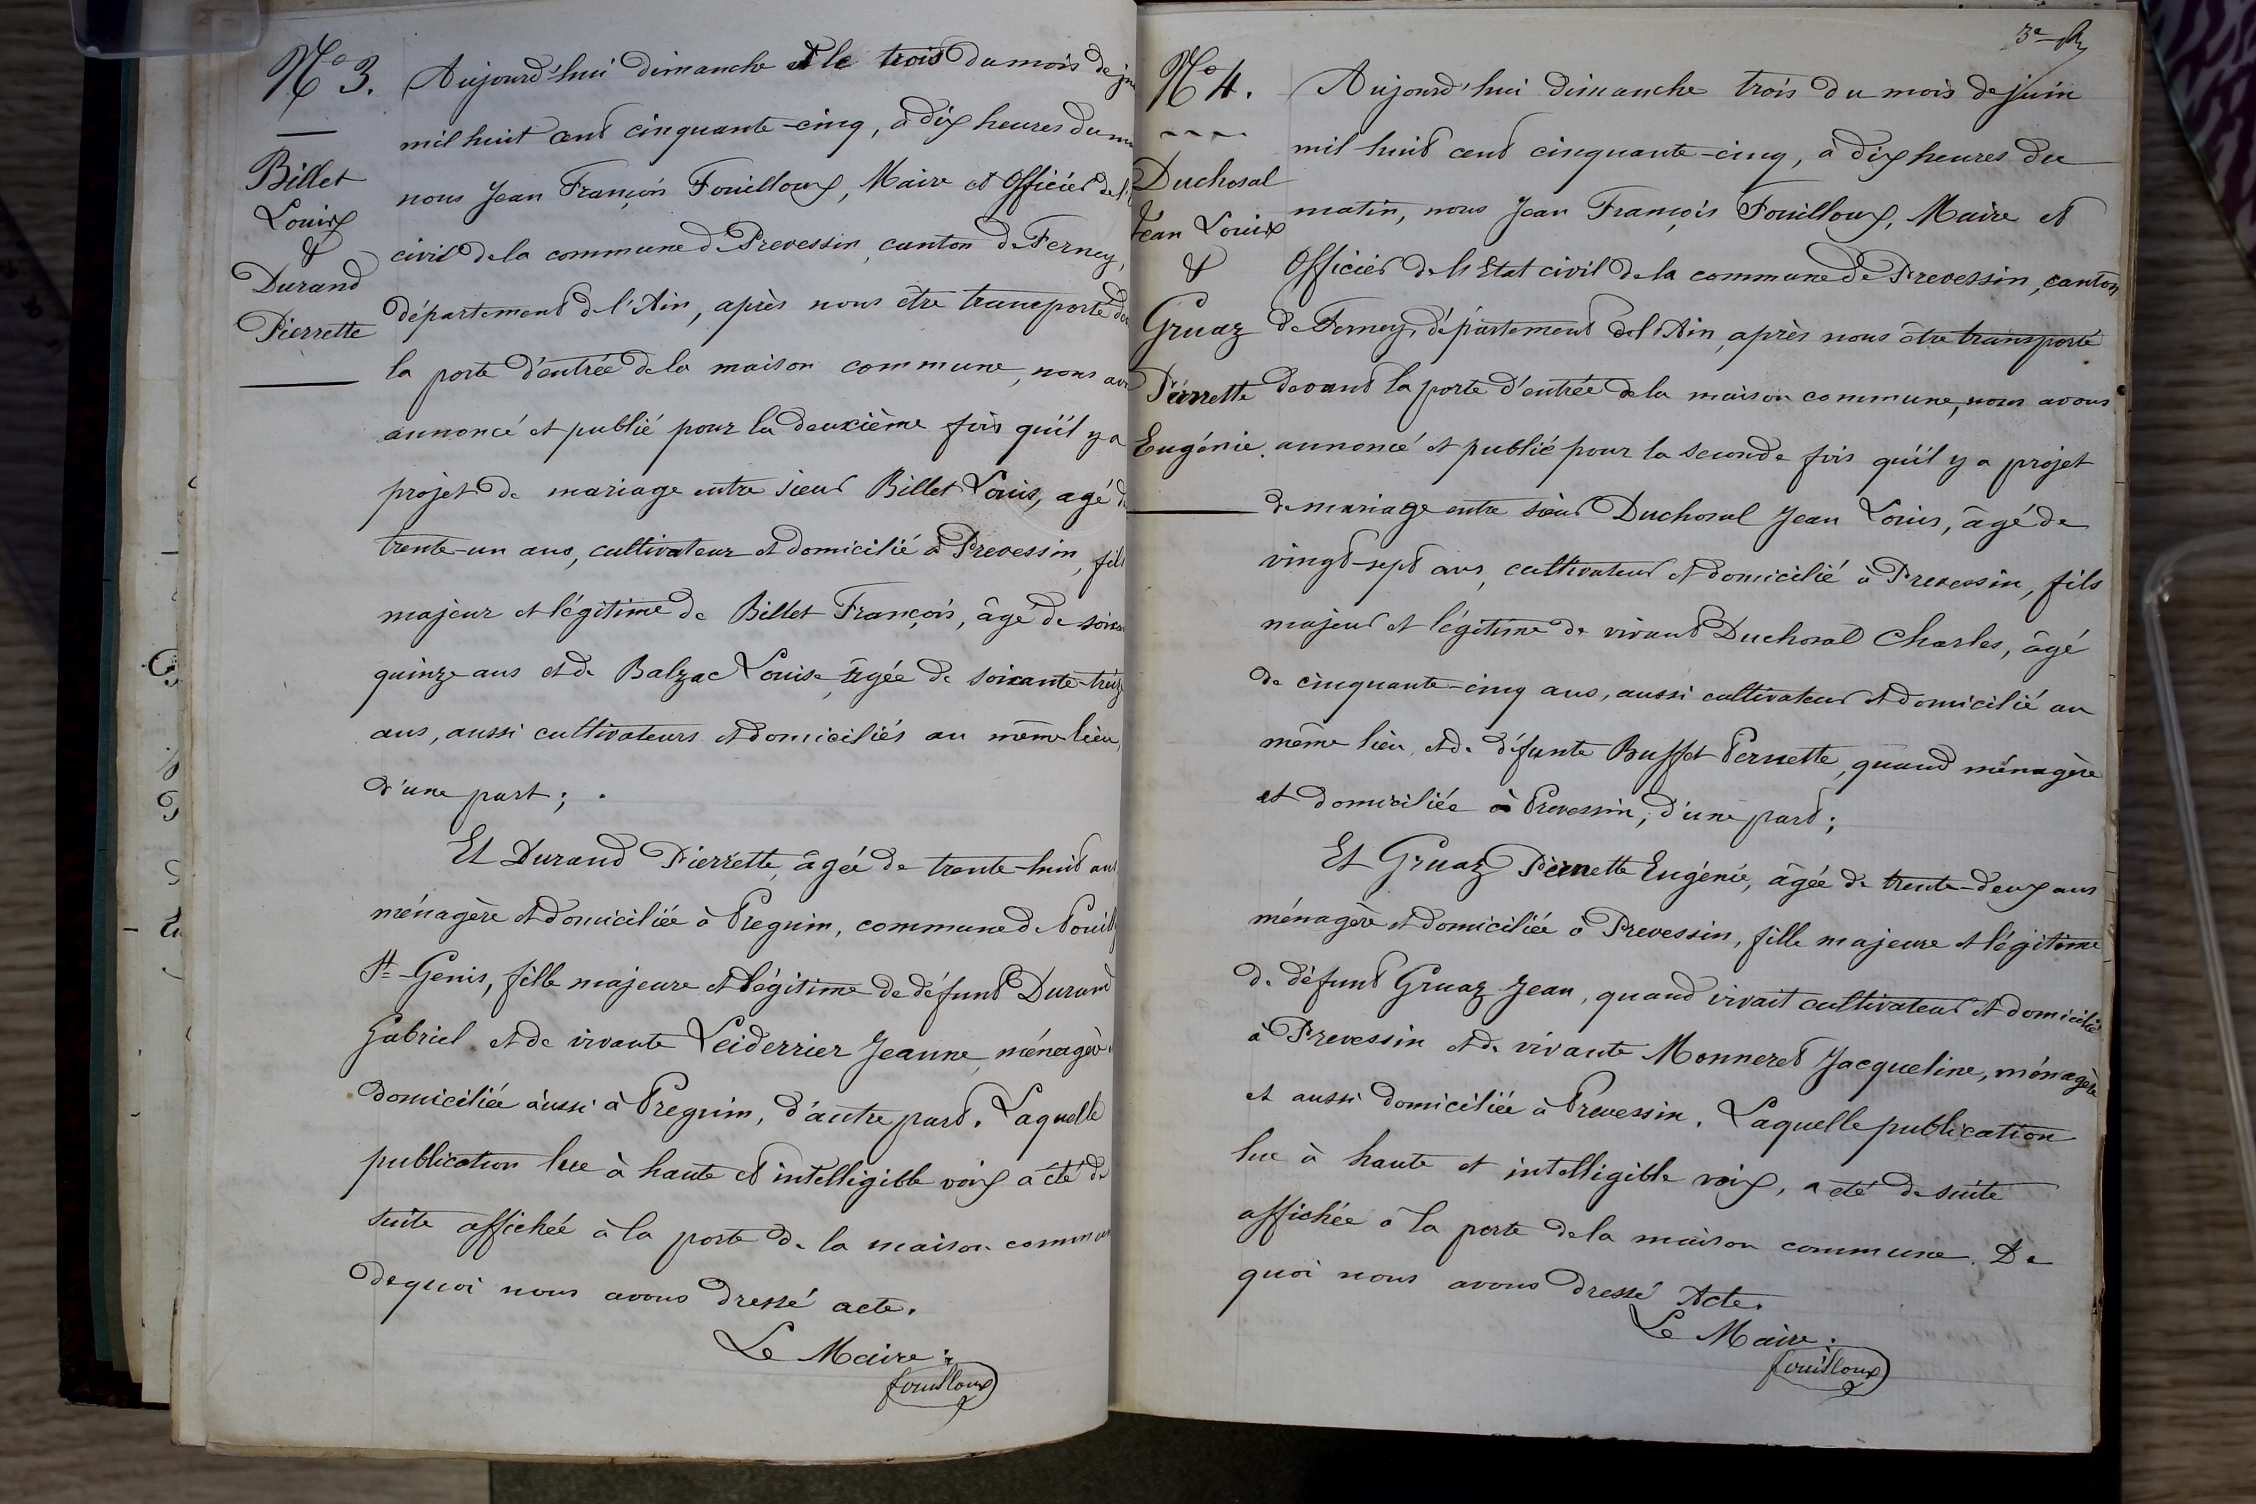 N° 3.
Billet
Louis
&
Durand
Pierrette
Aujourd'hui dimanche et le trois du mois de
mil huit cent cinquante-cinq, à dix heures du
nous Jean François Fouilloux, Maire et Officier de l'
civil de la commune de Prevessin, canton de Ferney,
département de l'Ain, après nous être transporté
la porte d'entrée de la maison commune, nous
annoncé et publié pour la deuxième fois qu'il y a
projet de mariage entre sieur Billet Louis, agé de
trente-un ans, cultivateur et domicilié à Prevessin, fils
majeur et légitime de Billet François, âgé de
quinze ans et de Balzac Louise, âgée de soixante-treize
ans, aussi cultivateurs et domiciliés au même lieu,
d'une part;
Et Durand Pierrette, âgée de trente-huit ans
ménagère et domiciliée à Pregnim, commune de Pouilly
St-Genis, fille majeure et légitime de défunt Durand
Gabriel et de vivante Leiderrier Jeanne, ménagère
domiciliée aussi à Pregnim, d'autre part. Laquelle
publication lue à haute et intelligible voix a été de
suite affichée à la porte de la maison commune
de quoi nous avons dressé acte.
Le Maire:
fouilloux
N° 4.
Duchosal
Jean Louis
&
Gruaz
Pernette
Eugénie.
Aujourd'hui dimanche trois du mois de juin
mil huit cent cinquante-cinq, à dix heures du
matin, nous Jean François Fouilloux, Maire et
Officier de l'Etat civil de la commune de Prevessin, canton
de Ferney, département de l'Ain, après nous être transporté
devant la porte d'entrée de la maison commune, nous avons
annoncé et publié pour la seconde fois qu'il y a projet
de mariage entre sieur Duchosal Jean Louis, âgé de
vingt-sept ans, cultivateur et domicilié à Prevessin, fils
majeur et légitime de vivant Duchosal Charles, âgé
de cinquante-cinq ans, aussi cultivateur et domicilié au
même lieu, et de défunte Buffet Pernette, quand ménagère
et domiciliée à Prevessin, d'une part;
Et Gruaz Pernette Eugénie, âgée de trente-deux ans
ménagère et domiciliée à Prevessin, fille majeure et légitime
de défunt Gruaz Jean, quand vivait cultivateur et domicilié
à Prevessin et de vivante Monneret Jacqueline, ménagère
et aussi domiciliée à Prevessin. Laquelle publication
lue à haute et intelligible voix, a été de suite
affichée à la porte de la maison commune. De
quoi nous avons dressé Acte.
Le Maire:
fouilloux